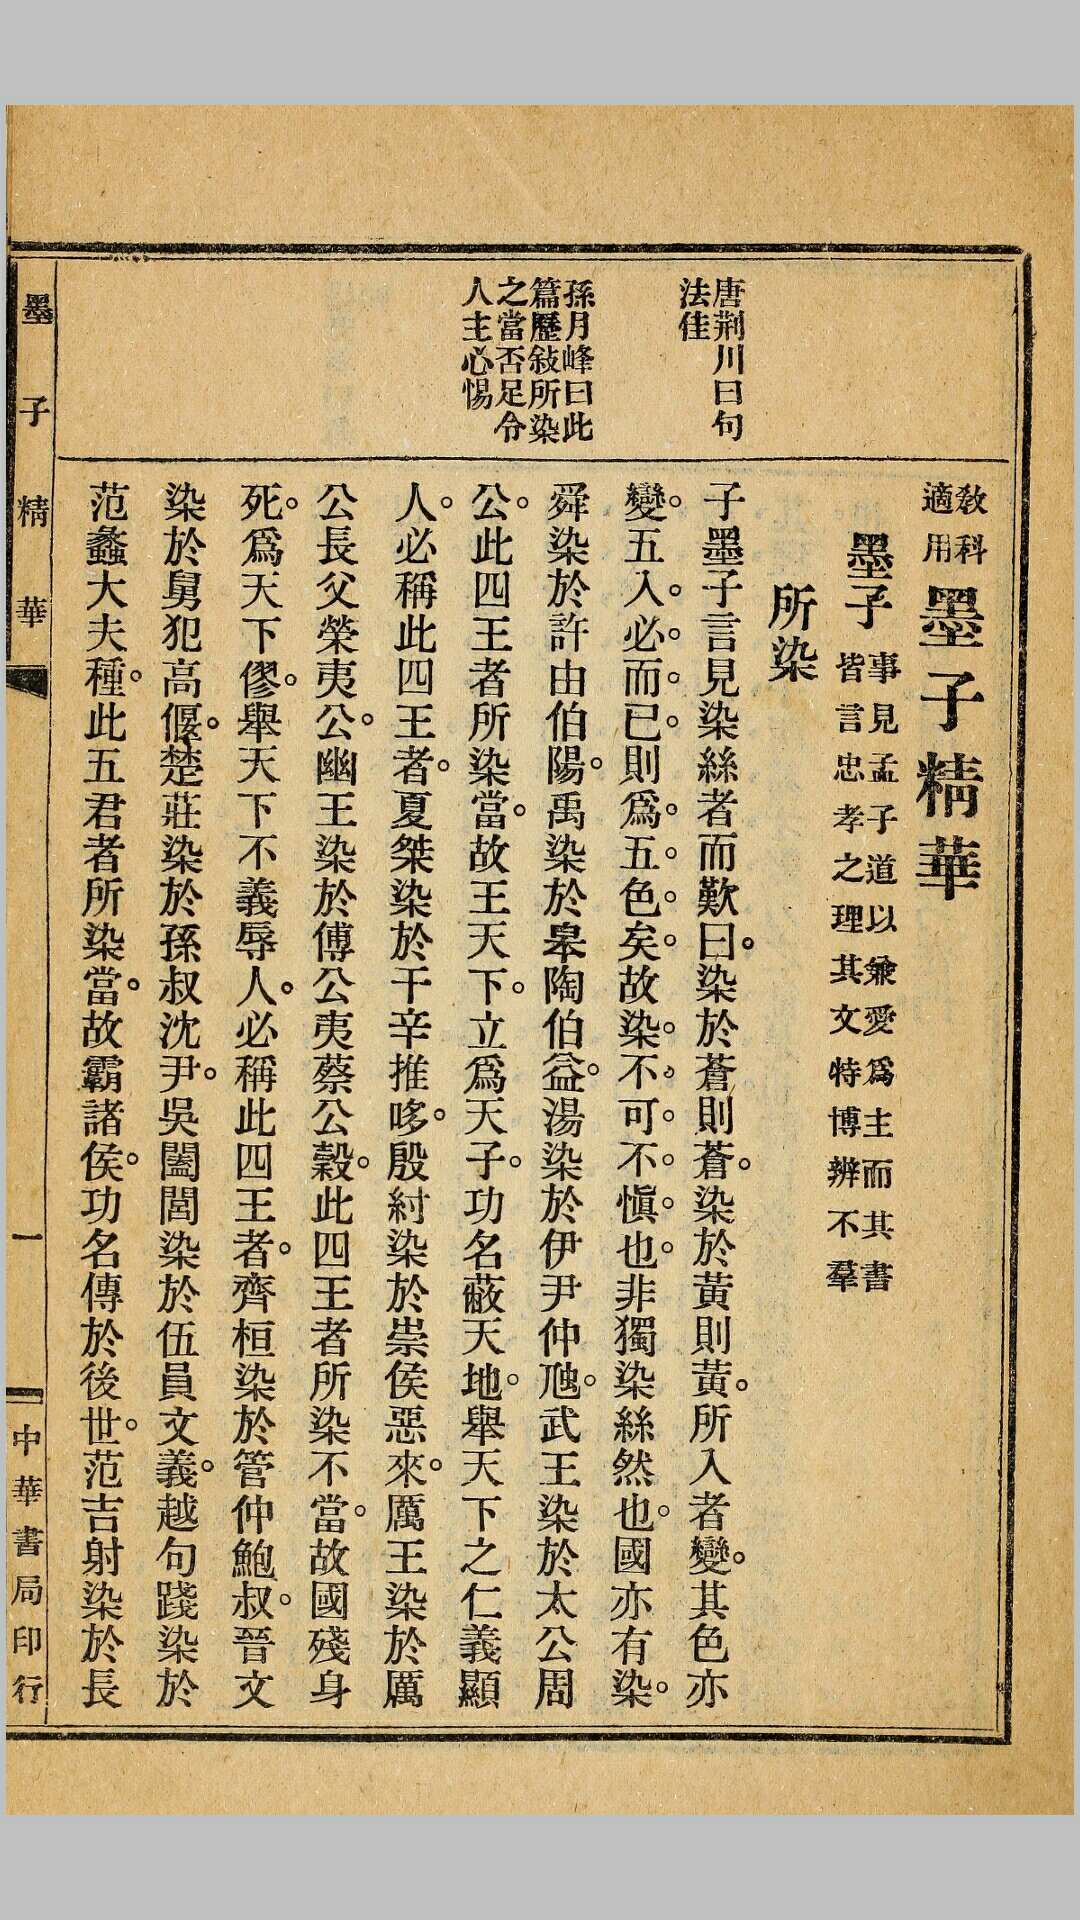 教科適用
墨子精華
墨子
事見孟子道以兼愛爲主而其書
皆言忠孝之理其文特博辨不羣
所染
唐荆川曰句
法佳
子墨子言見染絲者而歎曰。染於蒼則蒼。染於黃則黃。所入者變。其色亦
變。五入。必。而。已則爲。五。色。矣。故染。不。可。不。愼。也。非獨染絲然也。國亦有染。
舜染於許由伯陽。禹染於皋陶伯益。湯染於伊尹仲虺。武王染於太公周
孫月峰曰此
篇歷敍所染
之當否足令
人主必惕
公。此四王者所染當。故王天下。立爲天子。功名蔽天地。舉天下之仁義顯
人。必稱此四王者。夏桀染於干辛推哆。殷紂染於崇侯惡來。厲王染於厲
公長父榮夷公。幽王染於傅公夷蔡公穀。此四王者所染不當。故國殘身
死。爲天下僇。舉天下不義辱人。必稱此四王者。齊桓染於管仲鮑叔。晉文
染於舅犯高偃。楚莊染於孫叔沈尹。吳闔閭染於伍員文義。越句踐染於
范蠡大夫種。此五君者所染當。故霸諸侯。功名傳於後世。范吉射染於長
墨子精華
一
中華書局印行